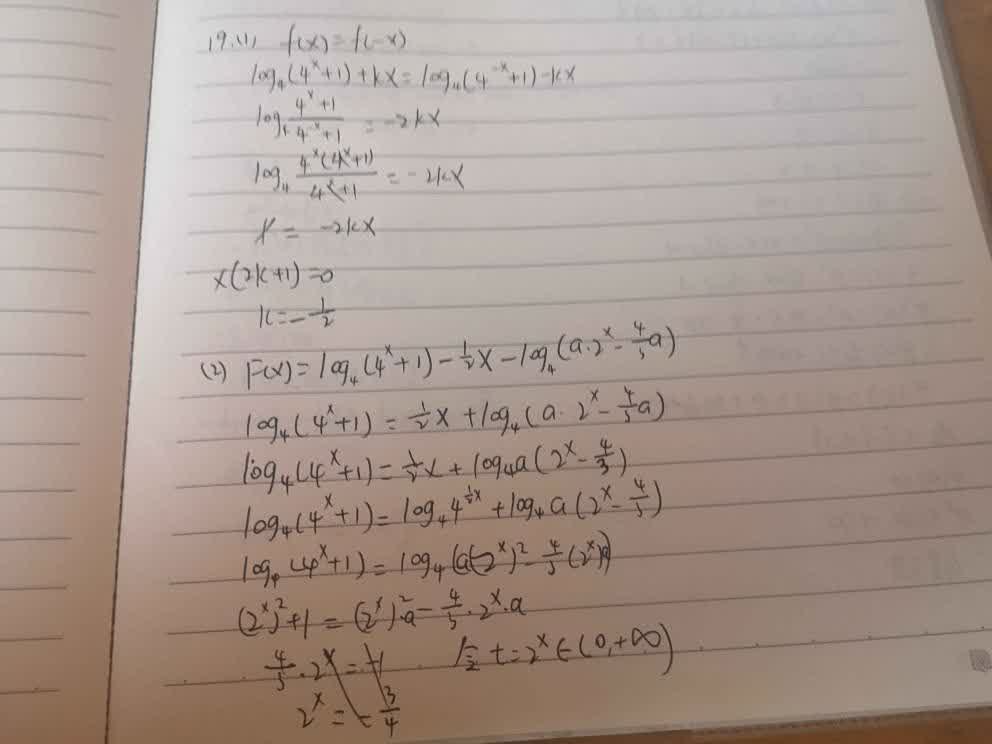 19.(1) f(x)=f(-x)
log₄(4ˣ+1)+kx=log₄(4⁻ˣ+1)-kx
log₄ (4ˣ+1)/(4⁻ˣ+1) = -2kx
log₄ 4ˣ(4ˣ+1)/(4ˣ+1) = -2kx
x = -2kx
x(2k+1)=0
k=-1/2
(2) F(x)=log₄(4ˣ+1)-½x-log₄(a·2ˣ-4/3a)
log₄(4ˣ+1)=½x+log₄(a·2ˣ-4/3a)
log₄(4ˣ+1)=½x+log₄a(2ˣ-4/3)
log₄(4ˣ+1)=log₄4^{½x}+log₄a(2ˣ-4/3)
log₄(4ˣ+1)=log₄(a(2ˣ)²-4/3(2ˣ)a)
(2ˣ)²+1=(2ˣ)²·a-4/3·2ˣ·a
4/3·2ˣ=-1 令t=2ˣ∈(0,+∞)
2ˣ=-3/4